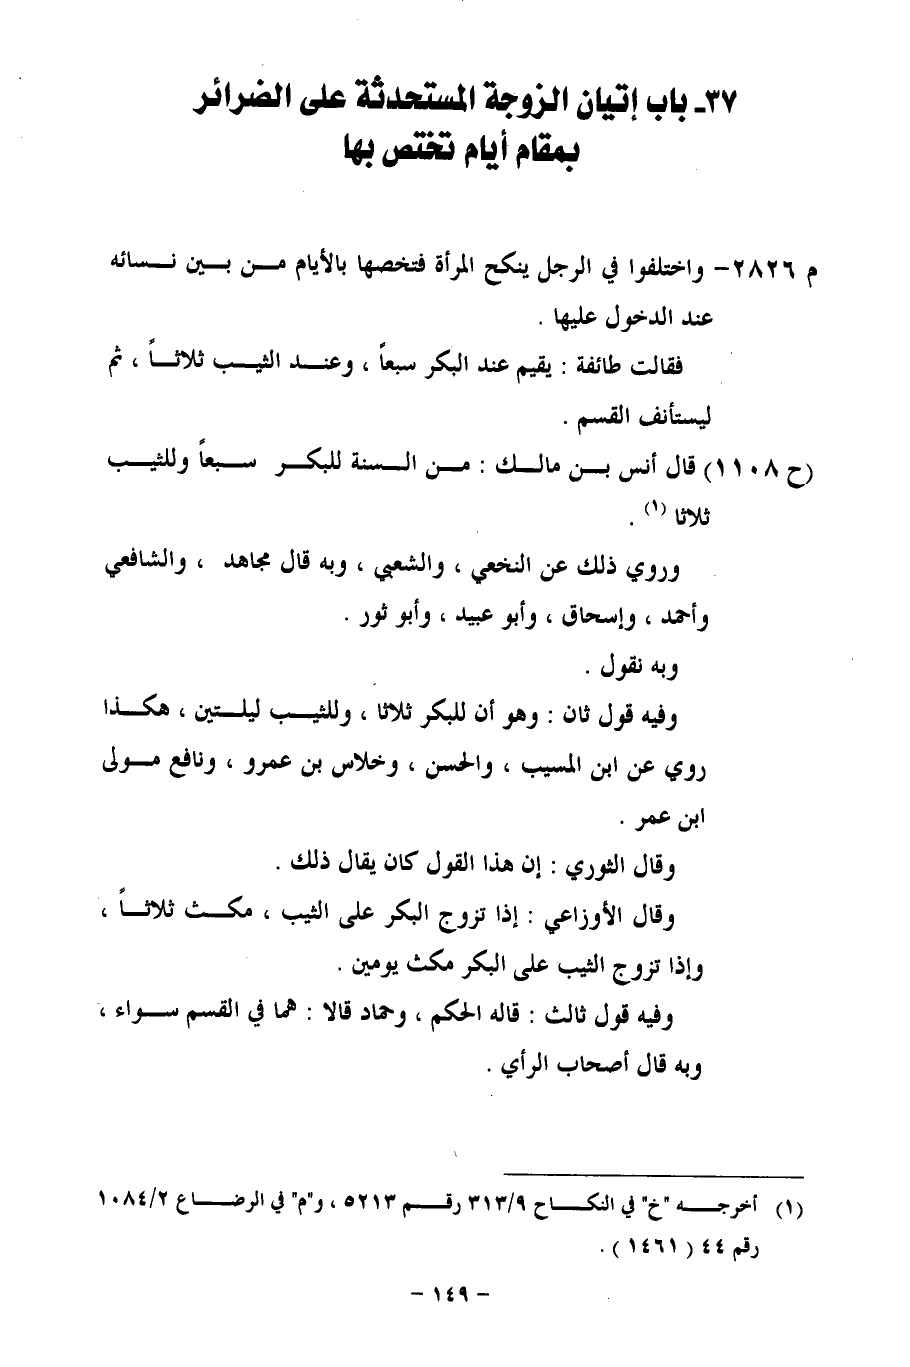 ٣٧ـ باب إتيان الزوجة المستحدثة على الضرائر
بمقام أيام تختص بها
م ٢٨٢٦ – واختلفوا في الرجل ينكح المرأة فتخصها بالأيام من بين نسائه
عند الدخول عليها .
فقالت طائفة : يقيم عند البكر سبعاً ، وعند الثيب ثلاثاً ، ثم
ليستأنف القسم .
(ح ١١٠٨) قال أنس بن مالك : من السنة للبكر سبعاً وللثيب
ثلاثا (١) .
وروي ذلك عن النخعي ، والشعبي ، وبه قال مجاهد ، والشافعي
وأحمد ، وإسحاق ، وأبو عبيد ، وأبو ثور .
وبه نقول .
وفيه قول ثان : وهو أن للبكر ثلاثا ، وللثيب ليلتين ، هكذا
روي عن ابن المسيب ، والحسن ، وخلاس بن عمرو ، ونافع مولى
ابن عمر .
وقال الثوري : إن هذا القول كان يقال ذلك .
وقال الأوزاعي : إذا تزوج البكر على الثيب ، مكث ثلاثاً ،
وإذا تزوج الثيب على البكر مكث يومين .
وفيه قول ثالث : قاله الحكم ، وحماد قالا : هما في القسم سواء ،
وبه قال أصحاب الرأي .
(١) أخرجه "خ" في النكاح ٣١٣/٩ رقم ٥٢١٣ ، و"م" في الرضاع ١٠٨٤/٢
رقم ٤٤ ( ١٤٦١ ) .
– ١٤٩ –